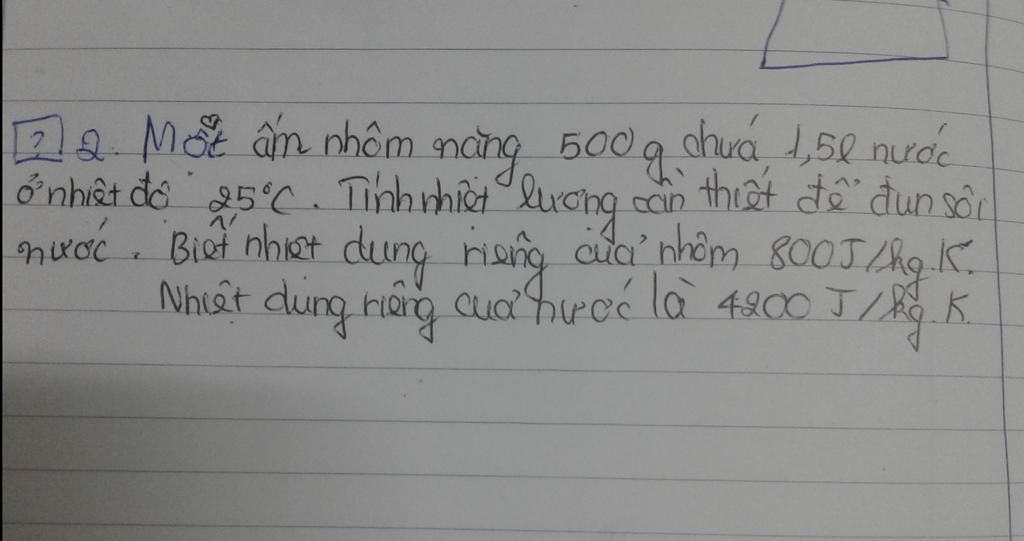 ? 2. Một ấm nhôm nặng 500g chứa 1,5l nước
ở nhiệt độ 25°C. Tính nhiệt lượng cần thiết để đun sôi
nước. Biết nhiệt dung riêng của nhôm 800J/kg.K.
Nhiệt dung riêng của nước là 4200 J/kg.K.